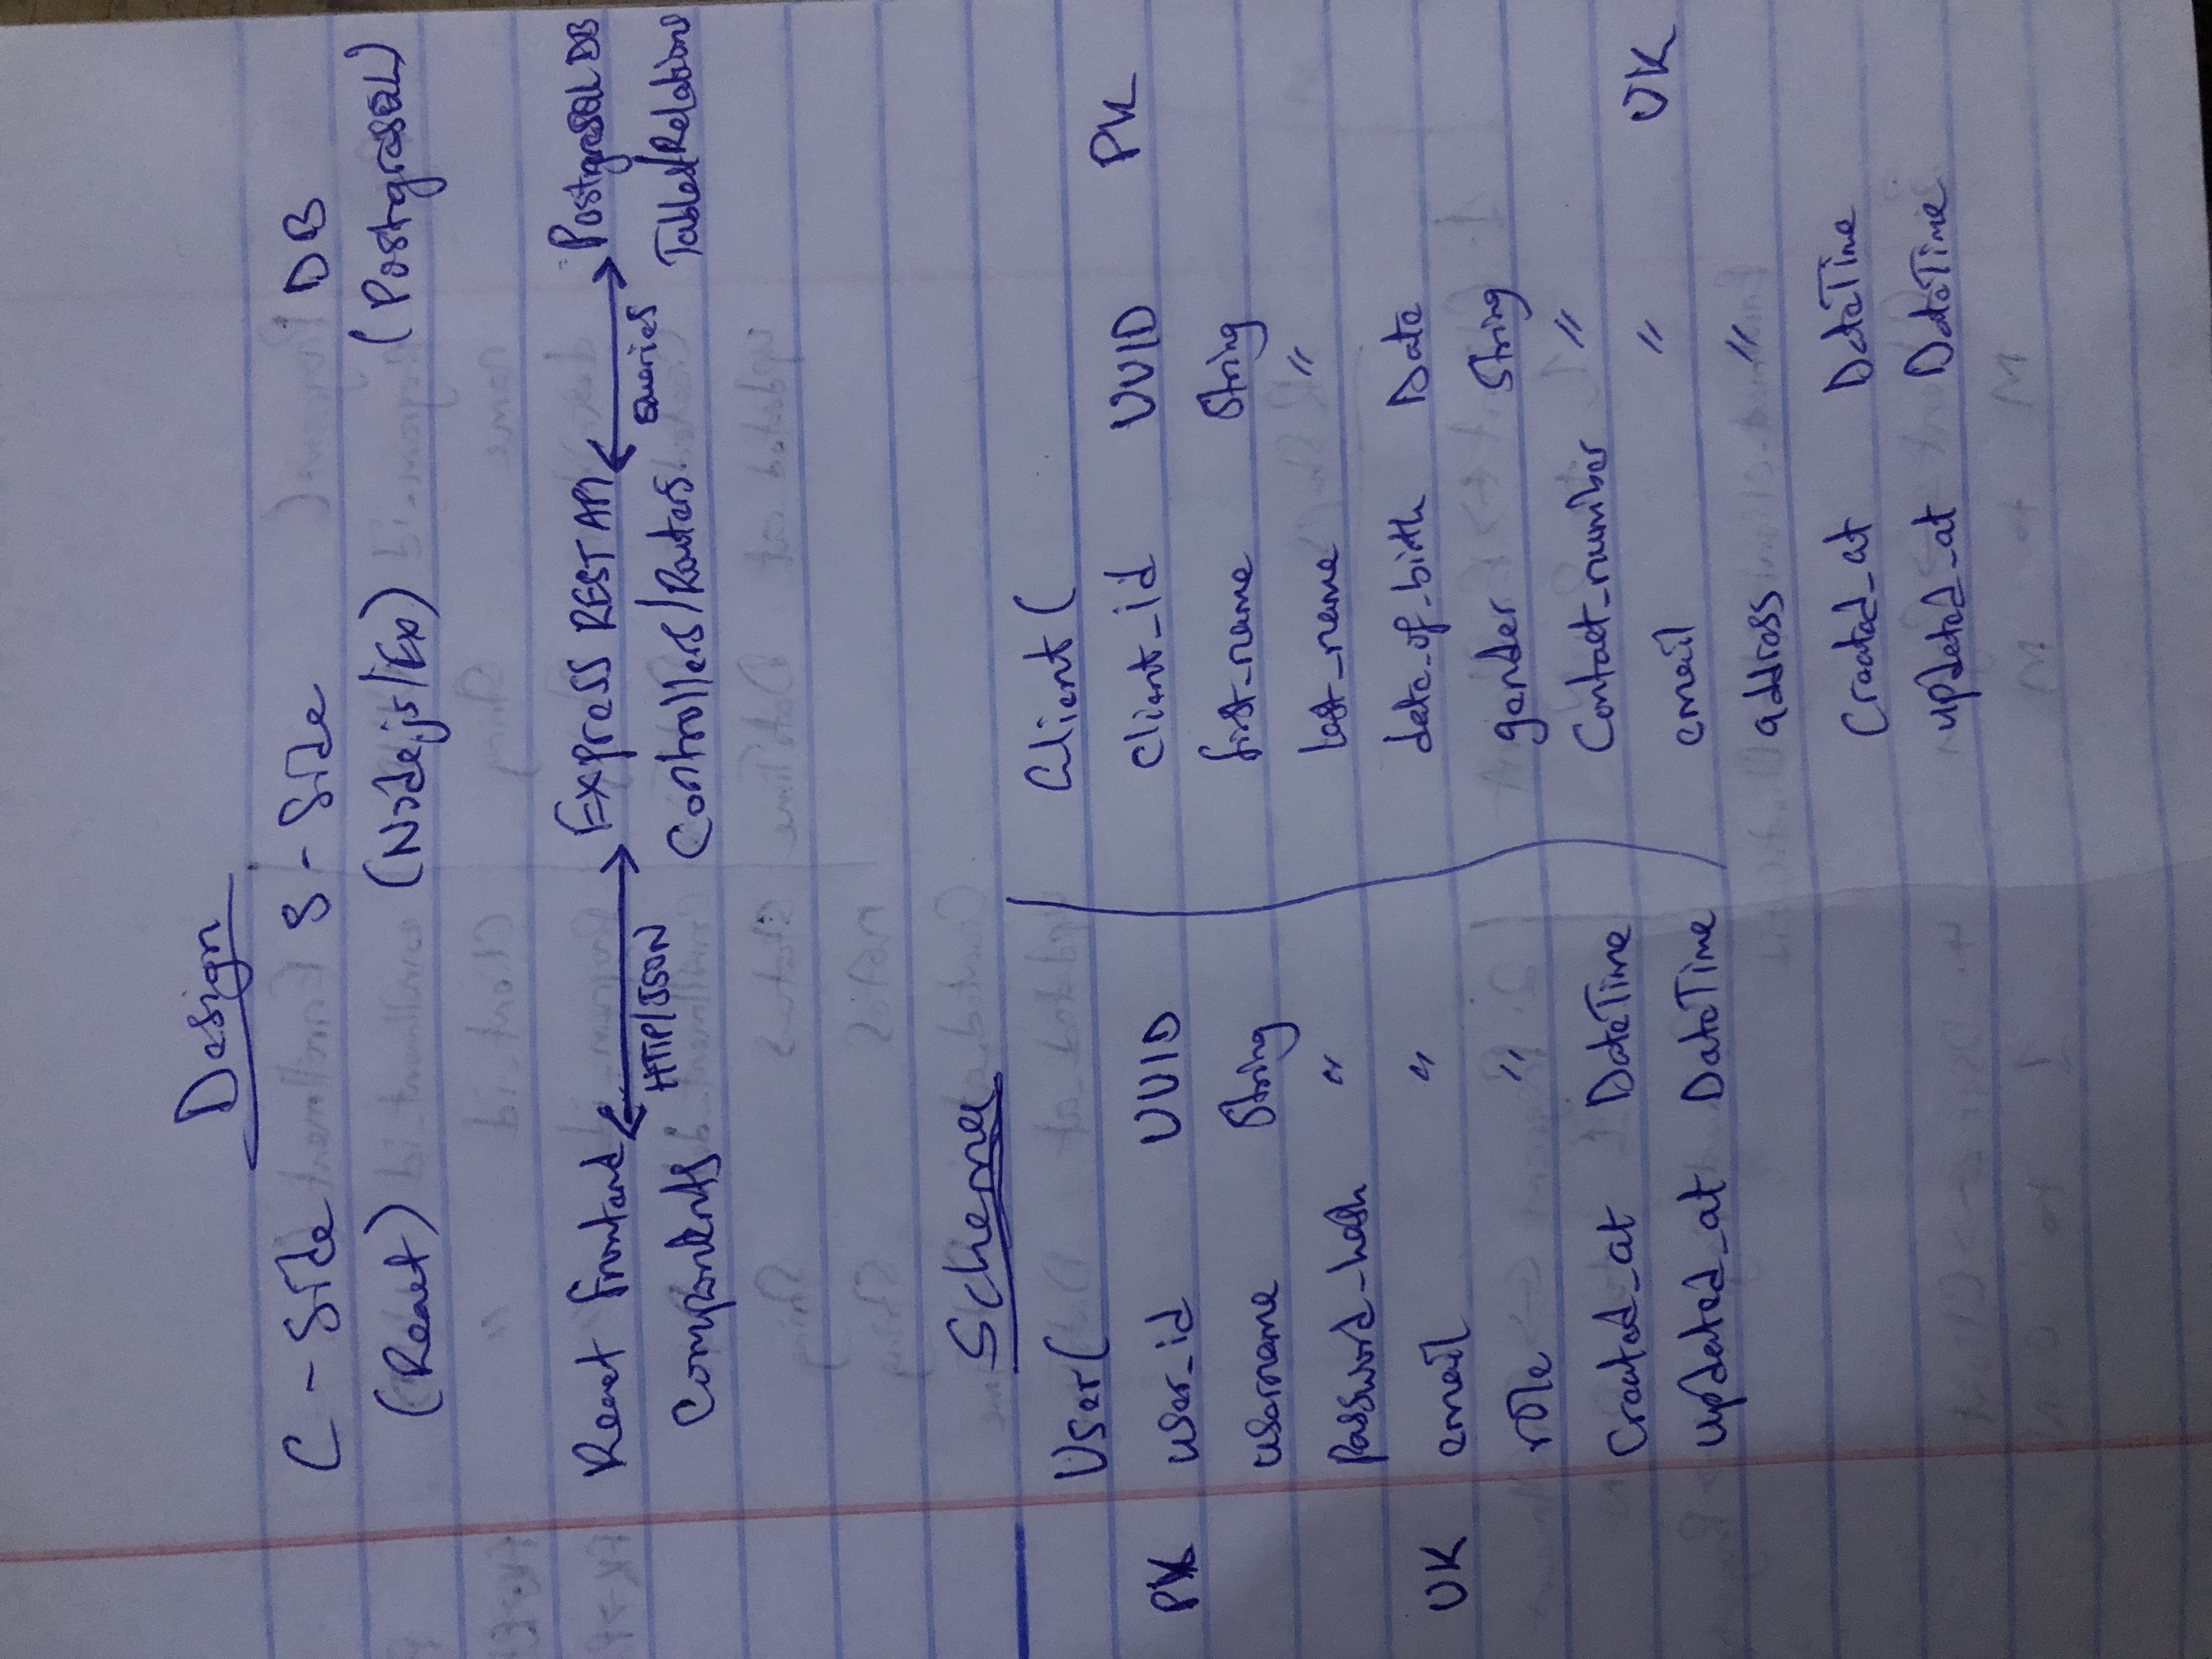 Design
C - Side S - Side DB
(React) (Node.js/Ex) (PostgreSQL)
React frontend Express REST API PostgreSQL DB
HTTP/JSON queries
Components Controllers/Routers. Tables/Relations
Schema
User(
PK user_id UUID
username String
Password_hash "
UK email "
role "
Created_at DateTime
updated_at DateTime
Client(
client_id UUID PK
first_name String
last_name "
date_of_birth Date
gender String
Contact_number "
email " UK
address "
Created_at DateTime
updated_at DateTime